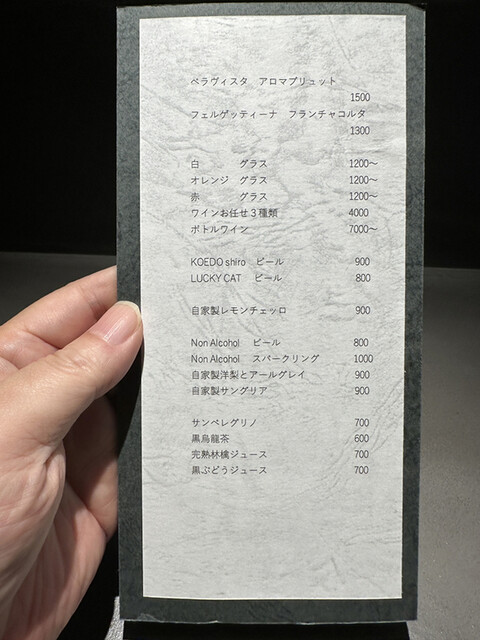 ベラヴィスタ　アロマブリュット
1500
フェルゲッティーナ　フランチャコルタ
1300
白　　　グラス　1200～
オレンジ　グラス　1200～
赤　　　グラス　1200～
ワインお任せ３種類　4000
ボトルワイン　7000～
KOEDO shiro　ビール　900
LUCKY CAT　ビール　800
自家製レモンチェッロ　900
Non Alcohol　ビール　800
Non Alcohol　スパークリング　1000
自家製洋梨とアールグレイ　900
自家製サングリア　900
サンペレグリノ　700
黒烏龍茶　600
完熟林檎ジュース　700
黒ぶどうジュース　700